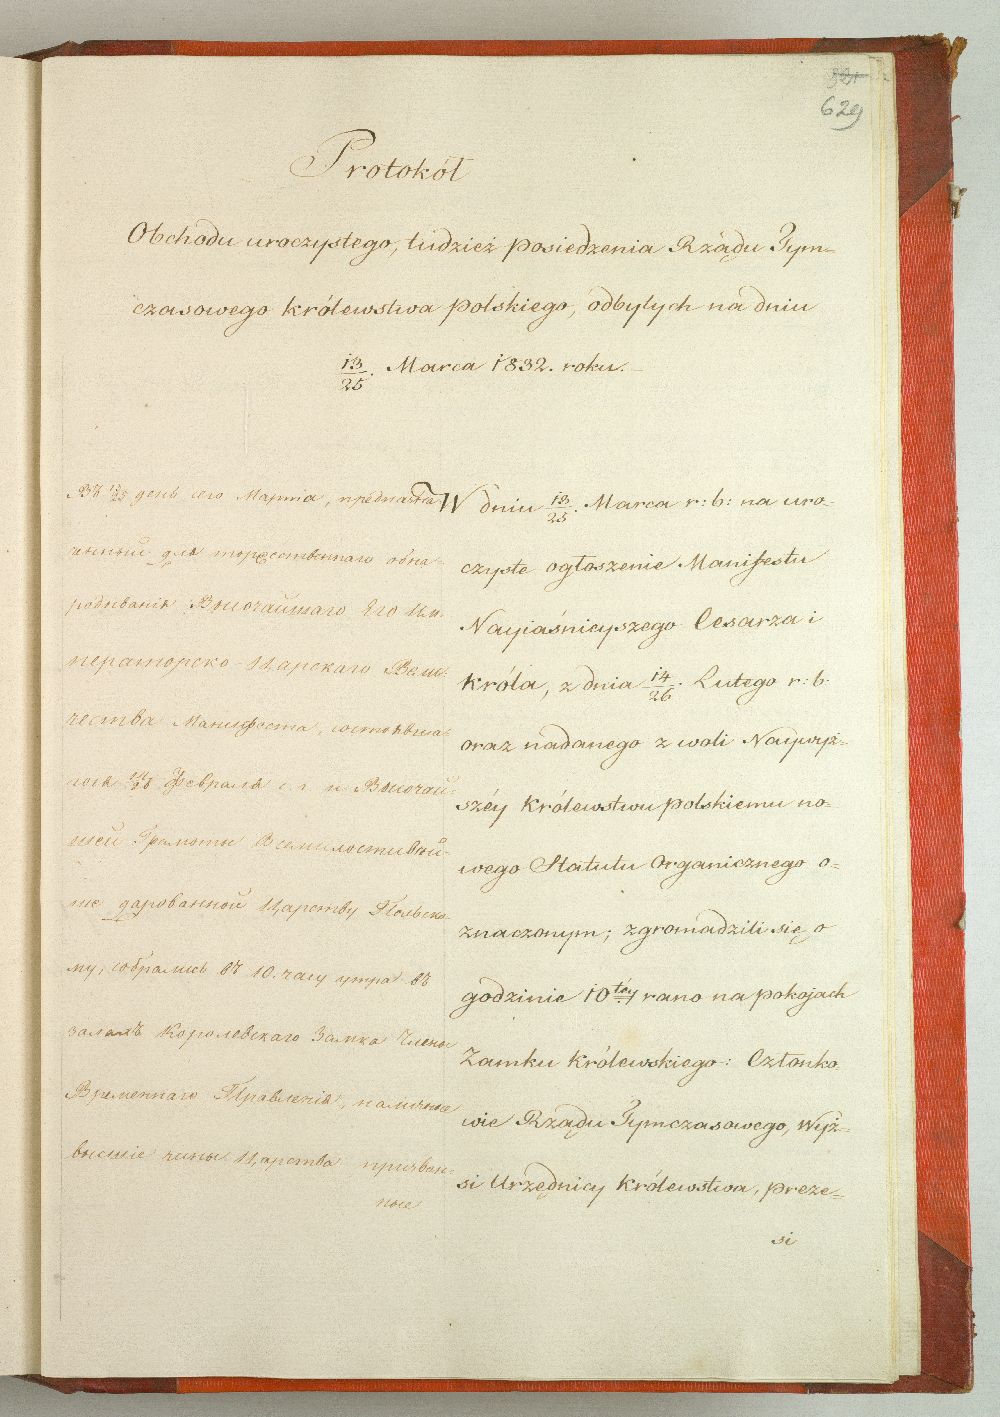 321
629
Protokół
Obchodu uroczystego, tudzież posiedzenia Rządu Tym=
czasowego Królewstwa polskiego, odbytych na dniu
13/25. Marca 1832. roku.
Въ 13/25 день сего Марта, предназна-
ченный для торжественнаго обна-
родыванія Высочайшаго Его Им-
ператорско-Царскаго Вели-
чества Манифеста, состоявша-
гося 14/26 Февраля с. г. и Высочай-
шей Грамоты Всемилостивѣй-
ше дарованной Царству Польско-
му, собрались въ 10. часу утра въ
залахъ Королевскаго Замка Члены
Временнаго Правленія, наличные
высшіе чины Царства призван-
ные
W dniu 13/25. Marca r: b: na uro-
czyste ogłoszenie Manifestu
Nayiaśnieyszego Cesarza i
Króla, z dnia 14/26. Lutego r: b.
oraz nadanego z woli Naywyż=
széy Królewstwu polskiemu no-
wego Statutu Organicznego o-
znaczonym; zgromadzili się o
godzinie 10téy rano na pokojach
Zamku Królewskiego: Członko
wie Rządu Tymczasowego, Wyż=
si Urzędnicy Królewstwa, preze=
si